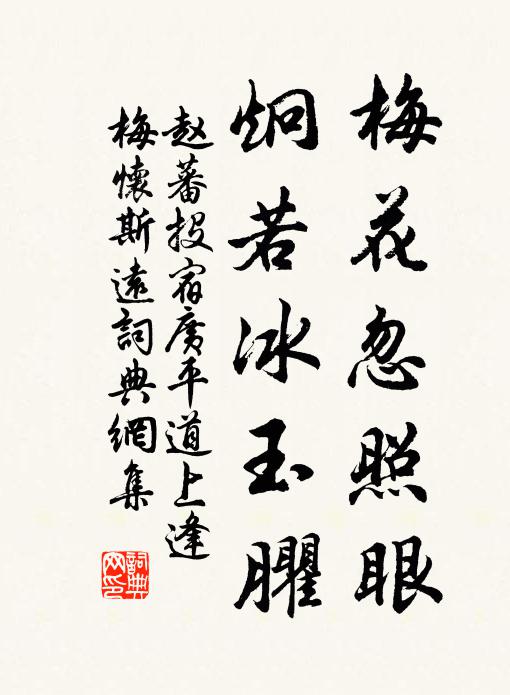 梅花忽照眼
炯若冰玉臞
赵蕃投宿广平道上逢
梅懷斯遠詞典網集
詞典网印